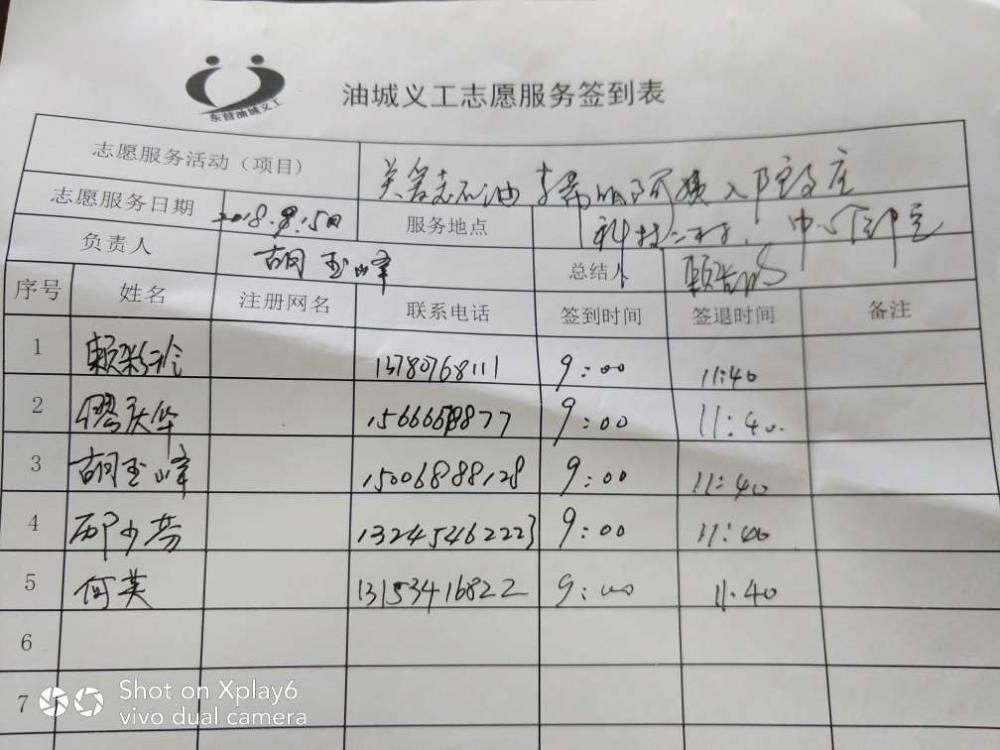 东营油城义工
油城义工志愿服务签到表
志愿服务活动（项目） 关爱老石油 阿姨入院
志愿服务日期 2018.9.15日 服务地点 科技二村、中心
负责人 胡玉峰 总结人
序号 姓名 注册网名 联系电话 签到时间 签退时间 备注
1 赖彩玲 13780768111 9:00 11:40
2 缪庆华 9:00 11:40
3 胡玉峰 15006888128 9:00 11:40
4 邴少芳 13245462223 9:00 11:40
5 何英 13153416822 9:00 11.40
6
7
Shot on Xplay6
vivo dual camera